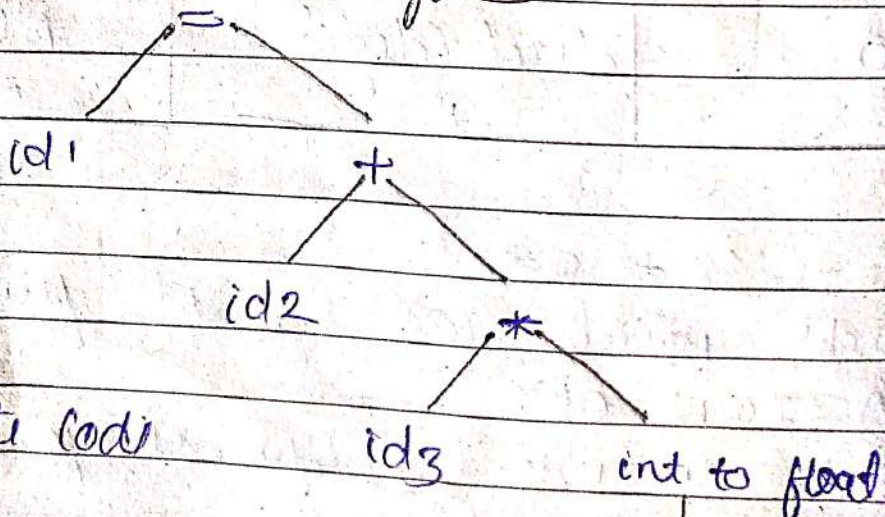 =
id1
+
id2
*
id3 int to float